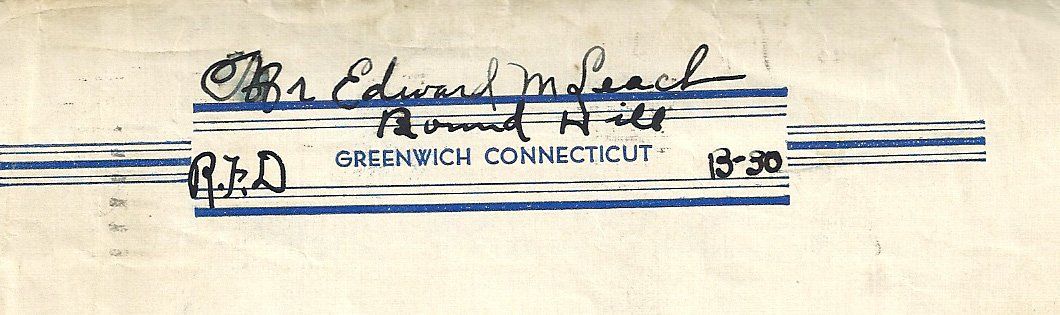 Mr Edward M Leach
Round Hill
GREENWICH CONNECTICUT
R.F.D B-30